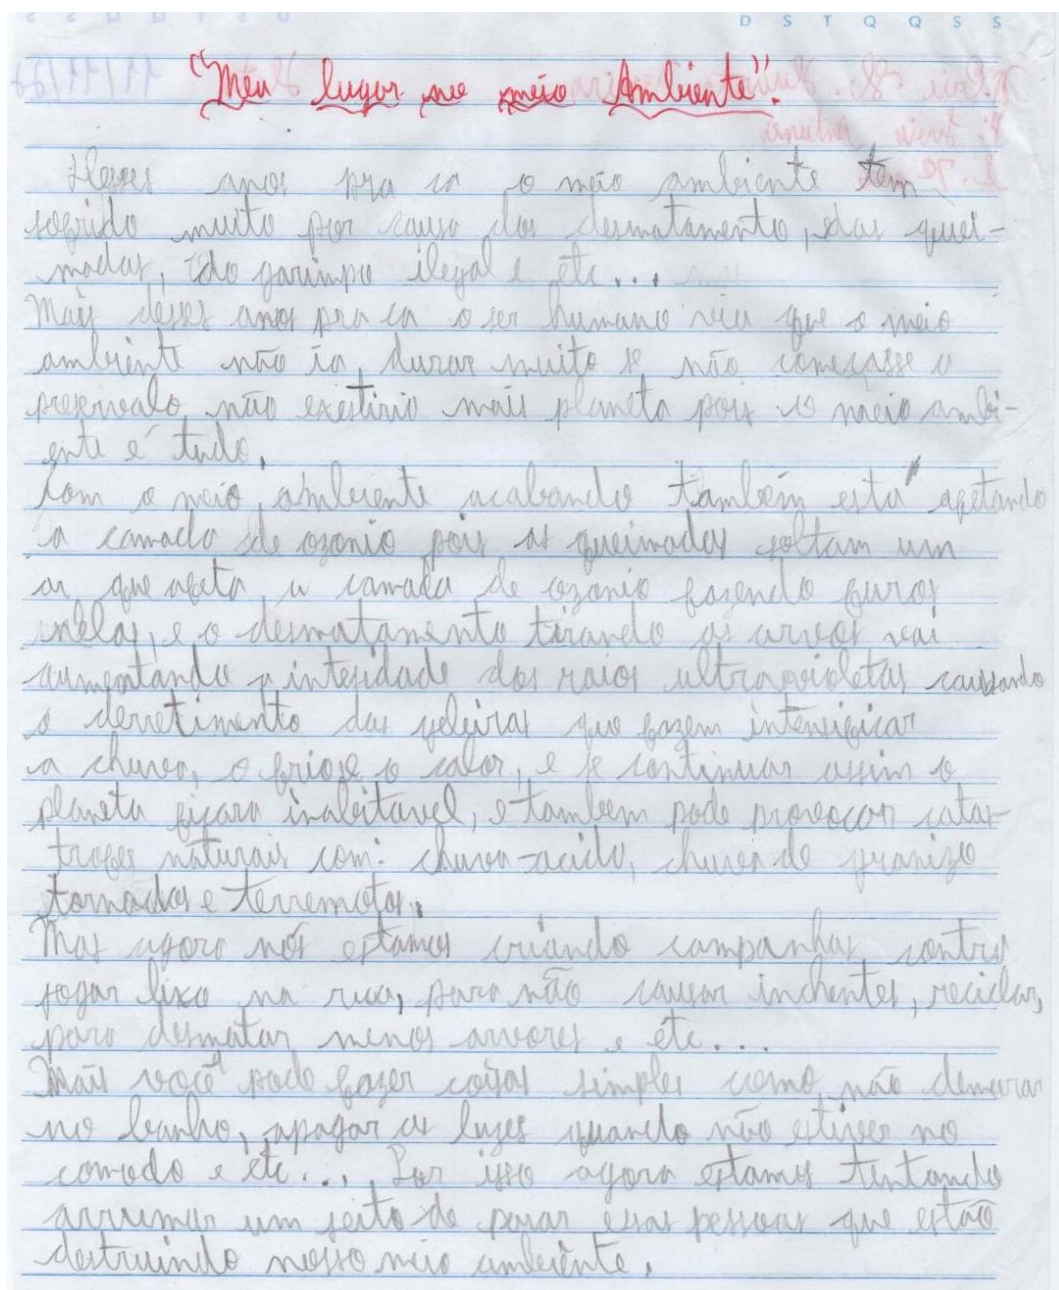 D S T Q Q S S
"Meu lugar no meio Ambiente".
anos pra ca o meio ambiente tem
sofrido muito por causa dos desmatamento, das quei-
madas, do garimpo ilegal e etc...
Mais desses anos pra ca o ser humano viu que o meio
ambiente não ia durar muito se não começasse a
preservalo não existirio mais planeta pois o meio ambi-
ente é tudo.
Com o meio ambiente acabando também está afetando
a camada de ozonio pois as queimadas soltam um
ar que afeta a camada de ozonio fazendo furos
nelas, e o desmatamento tirando as arvos vai
aumentando a intesidade dos raios ultravioletas causando
o derretimento das geleiras que fazem intensificar
a chuva, o frio e o calor, e se continuar assim o
planeta ficara inabitavel, e também pode provocar catas-
trofes naturais com: chuva-acida, chuva de granizo
tornados e terremotos.
Mas agora nós estamos criando campanhas contra
jogar lixo na rua, para não causar inchentes, reciclar,
para desmatar menos arvores e etc...
Mais você pode fazer coisas simples como não demorar
no banho, apagar as luzes quando não estiver no
comodo e etc... Por isso agora estamos tentando
arrumar um jeito de parar essas pessoas que estão
destruindo nosso meio ambiente.